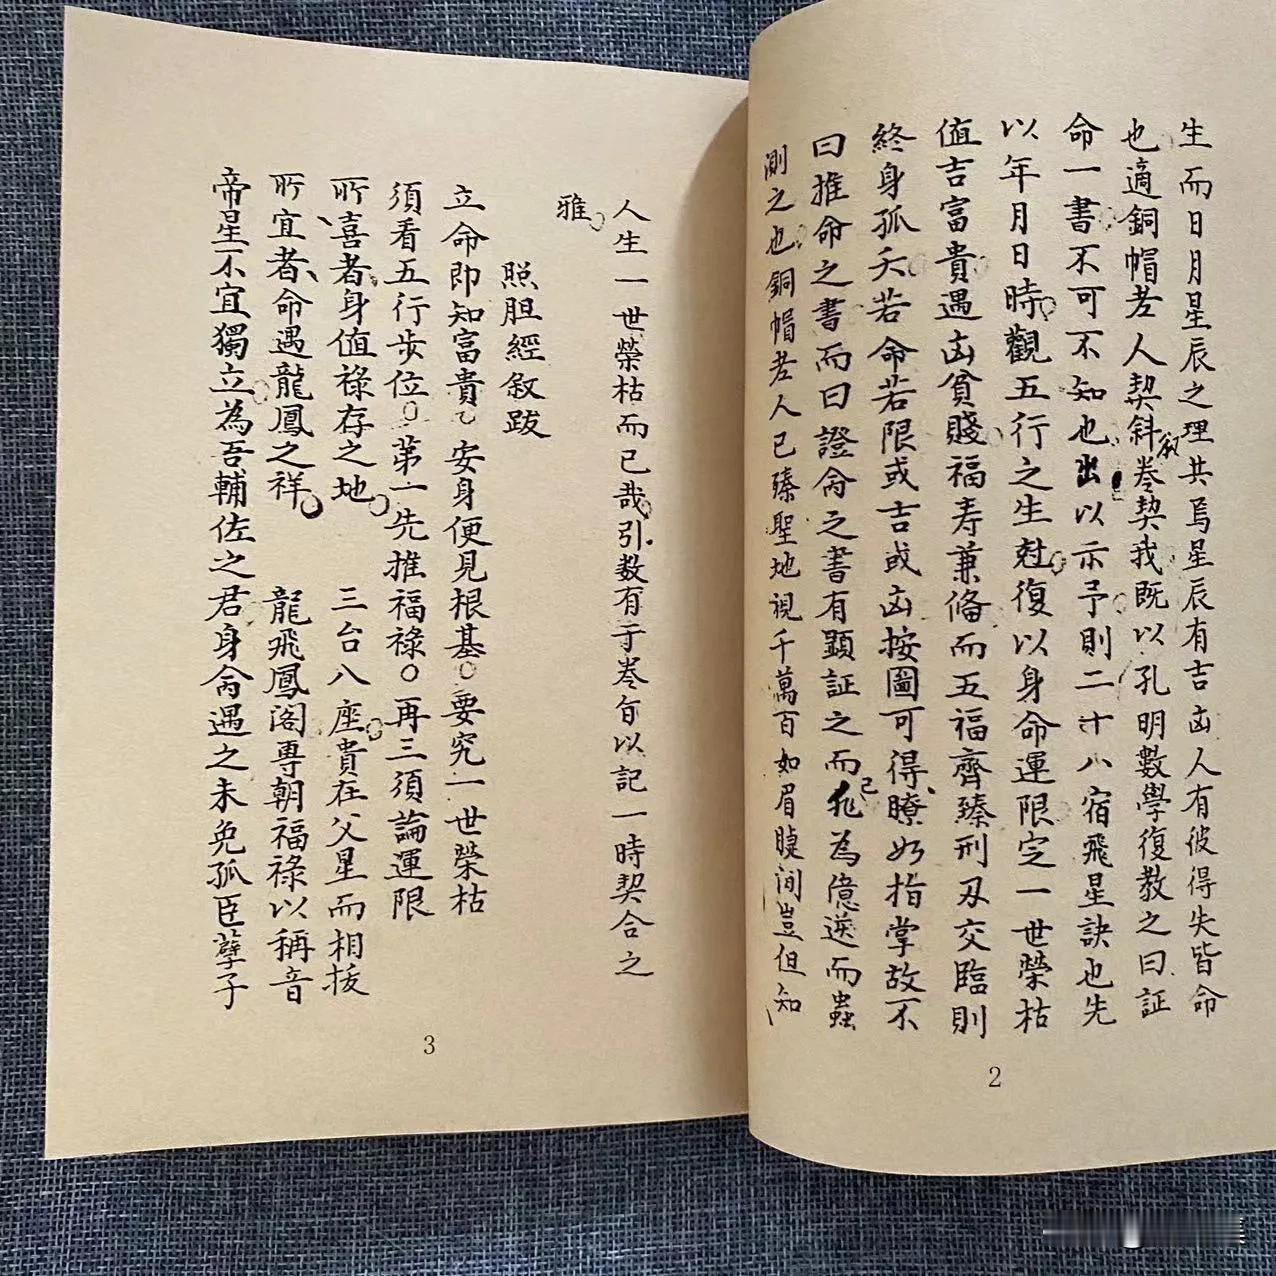 生而日月星辰之理共焉星辰有吉凶人有彼得失皆命
也適銅帽老人契斜叙卷契我既以孔明數學復教之曰証
命一書不可不知也出以示予則二十八宿飛星訣也先
以年月日時觀五行之生尅復以身命運限定一世榮枯
值吉富貴遇凶貧賤福寿兼俻而五福齊臻刑刃交臨則
終身孤夭若命若限或吉或凶按圖可得瞭如指掌故不
曰推命之書而曰證命之書有顕証之而已為億逆而蟲
測之也銅帽老人已臻聖地視千萬百如眉睫间豈但知
2
人生一世榮枯而已哉引数有于卷旨以記一時契合之
雅
照胆經敘跋
立命即知富貴安身便見根基要究一世榮枯
須看五行步位第一先推福祿再三須論運限
所喜者身值祿存之地 三台八座貴在父星而相拔
所宜者命遇龍鳳之祥 龍飛鳳阁専朝福祿以稱音
帝星不宜獨立為吾輔佐之君身命遇之未免孤臣孽子
3